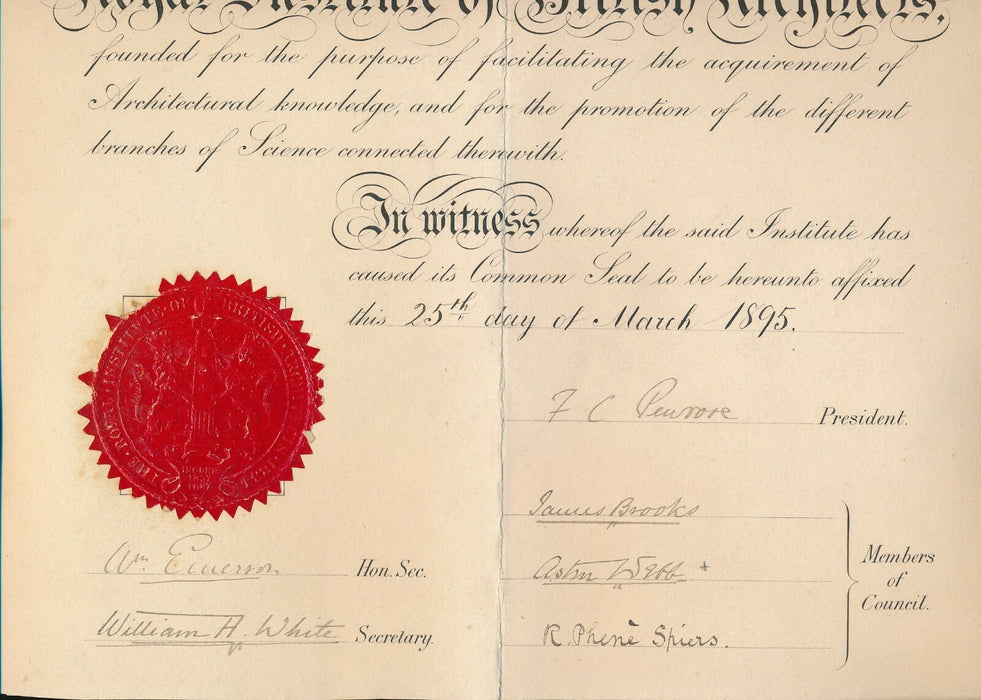 Royal Institute of British Architects,
founded for the purpose of facilitating the acquirement of
Architectural knowledge, and for the promotion of the different
branches of Science connected therewith.
In witness whereof the said Institute has
caused its Common Seal to be hereunto affixed
this 25th day of March 1895.
F C Penrose President.
James Brooks
Wm. Emerson Hon. Sec.
Aston Webb
Members
of
Council.
William H. White Secretary.
R. Phenè Spiers.
THE ROYAL INSTITUTE OF BRITISH